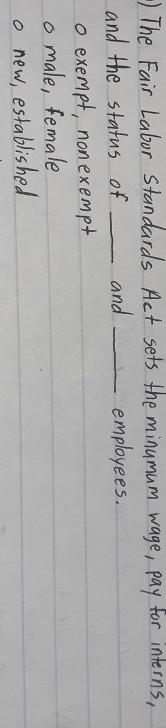 ) The Fair Labor Standards Act sets the minymum wage, pay for interns,
and the status of ____ and ____ employees.
o exempt, nonexempt
o male, female
o new, established